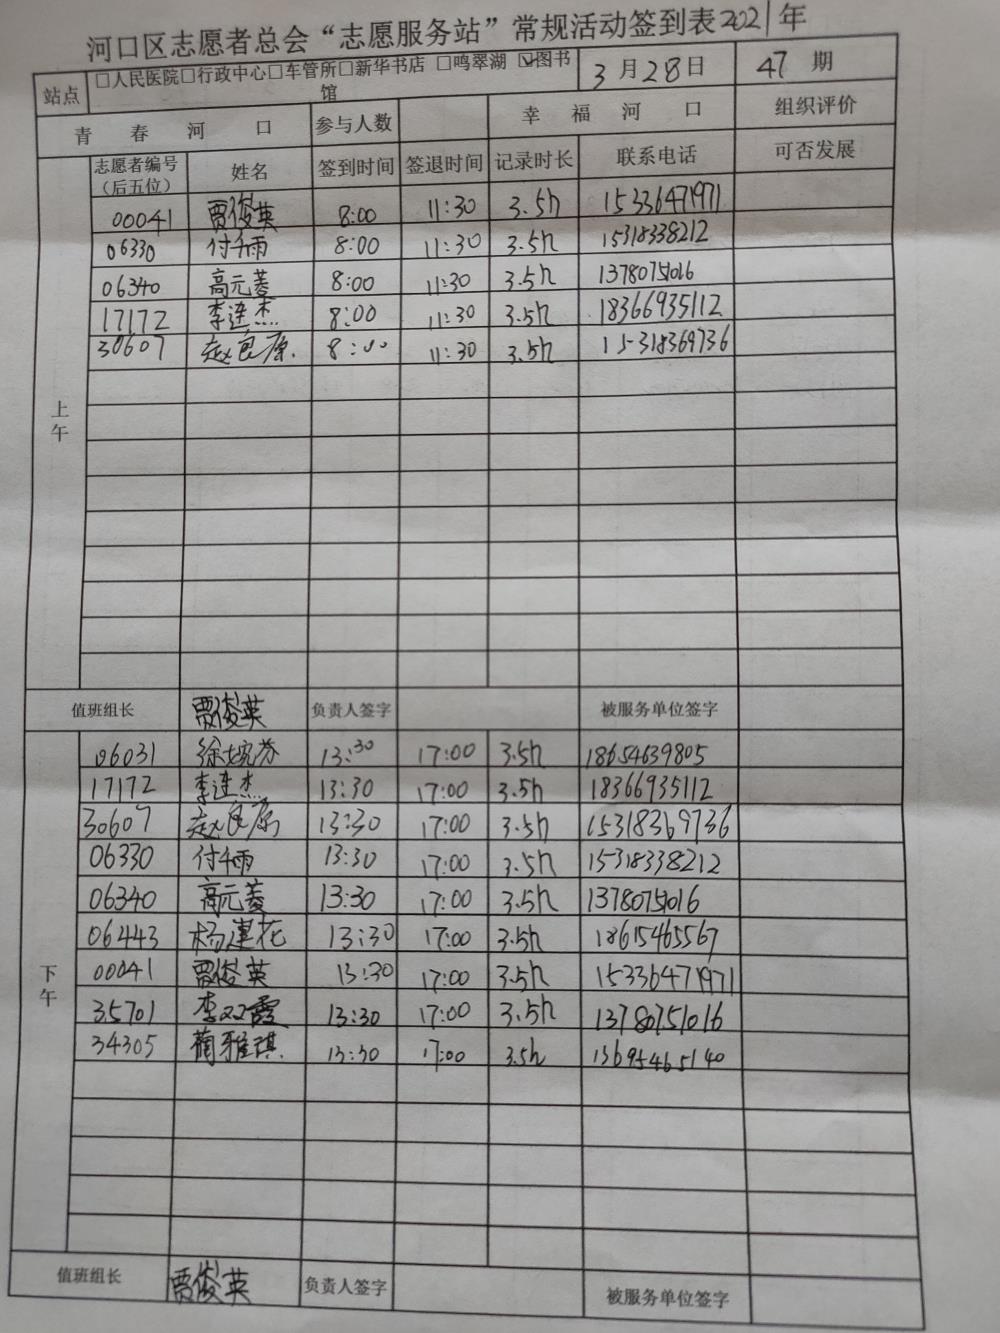 河口区志愿者总会“志愿服务站”常规活动签到表2021年
站点 □人民医院□行政中心□车管所□新华书店 □鸣翠湖 ☑图书馆 3月28日 47期
青春河口 参与人数 幸福河口 组织评价
志愿者编号（后五位） 姓名 签到时间 签退时间 记录时长 联系电话 可否发展
上午
00041 贾俊英 8:00 11:30 3.5h 15336471971
06330 付千雨 8:00 11:30 3.5h 15318338212
06340 高元菱 8:00 11:30 3.5h 13780751016
17172 李连杰 8:00 11:30 3.5h 18366935112
30607 赵良原 8:00 11:30 3.5h 15318369736
值班组长 贾俊英 负责人签字 被服务单位签字
下午
06031 徐婉芬 13:30 17:00 3.5h 18654639805
17172 李连杰 13:30 17:00 3.5h 18366935112
30607 赵良原 13:30 17:00 3.5h 15318369736
06330 付千雨 13:30 17:00 3.5h 15318338212
06340 高元菱 13:30 17:00 3.5h 13780751016
06443 杨莲花 13:30 17:00 3.5h 18615465567
00041 贾俊英 13:30 17:00 3.5h 15336471971
35701 李双霞 13:30 17:00 3.5h 13780751016
34305 蔺雅琪 13:30 17:00 3.5h 13695465140
值班组长 贾俊英 负责人签字 被服务单位签字